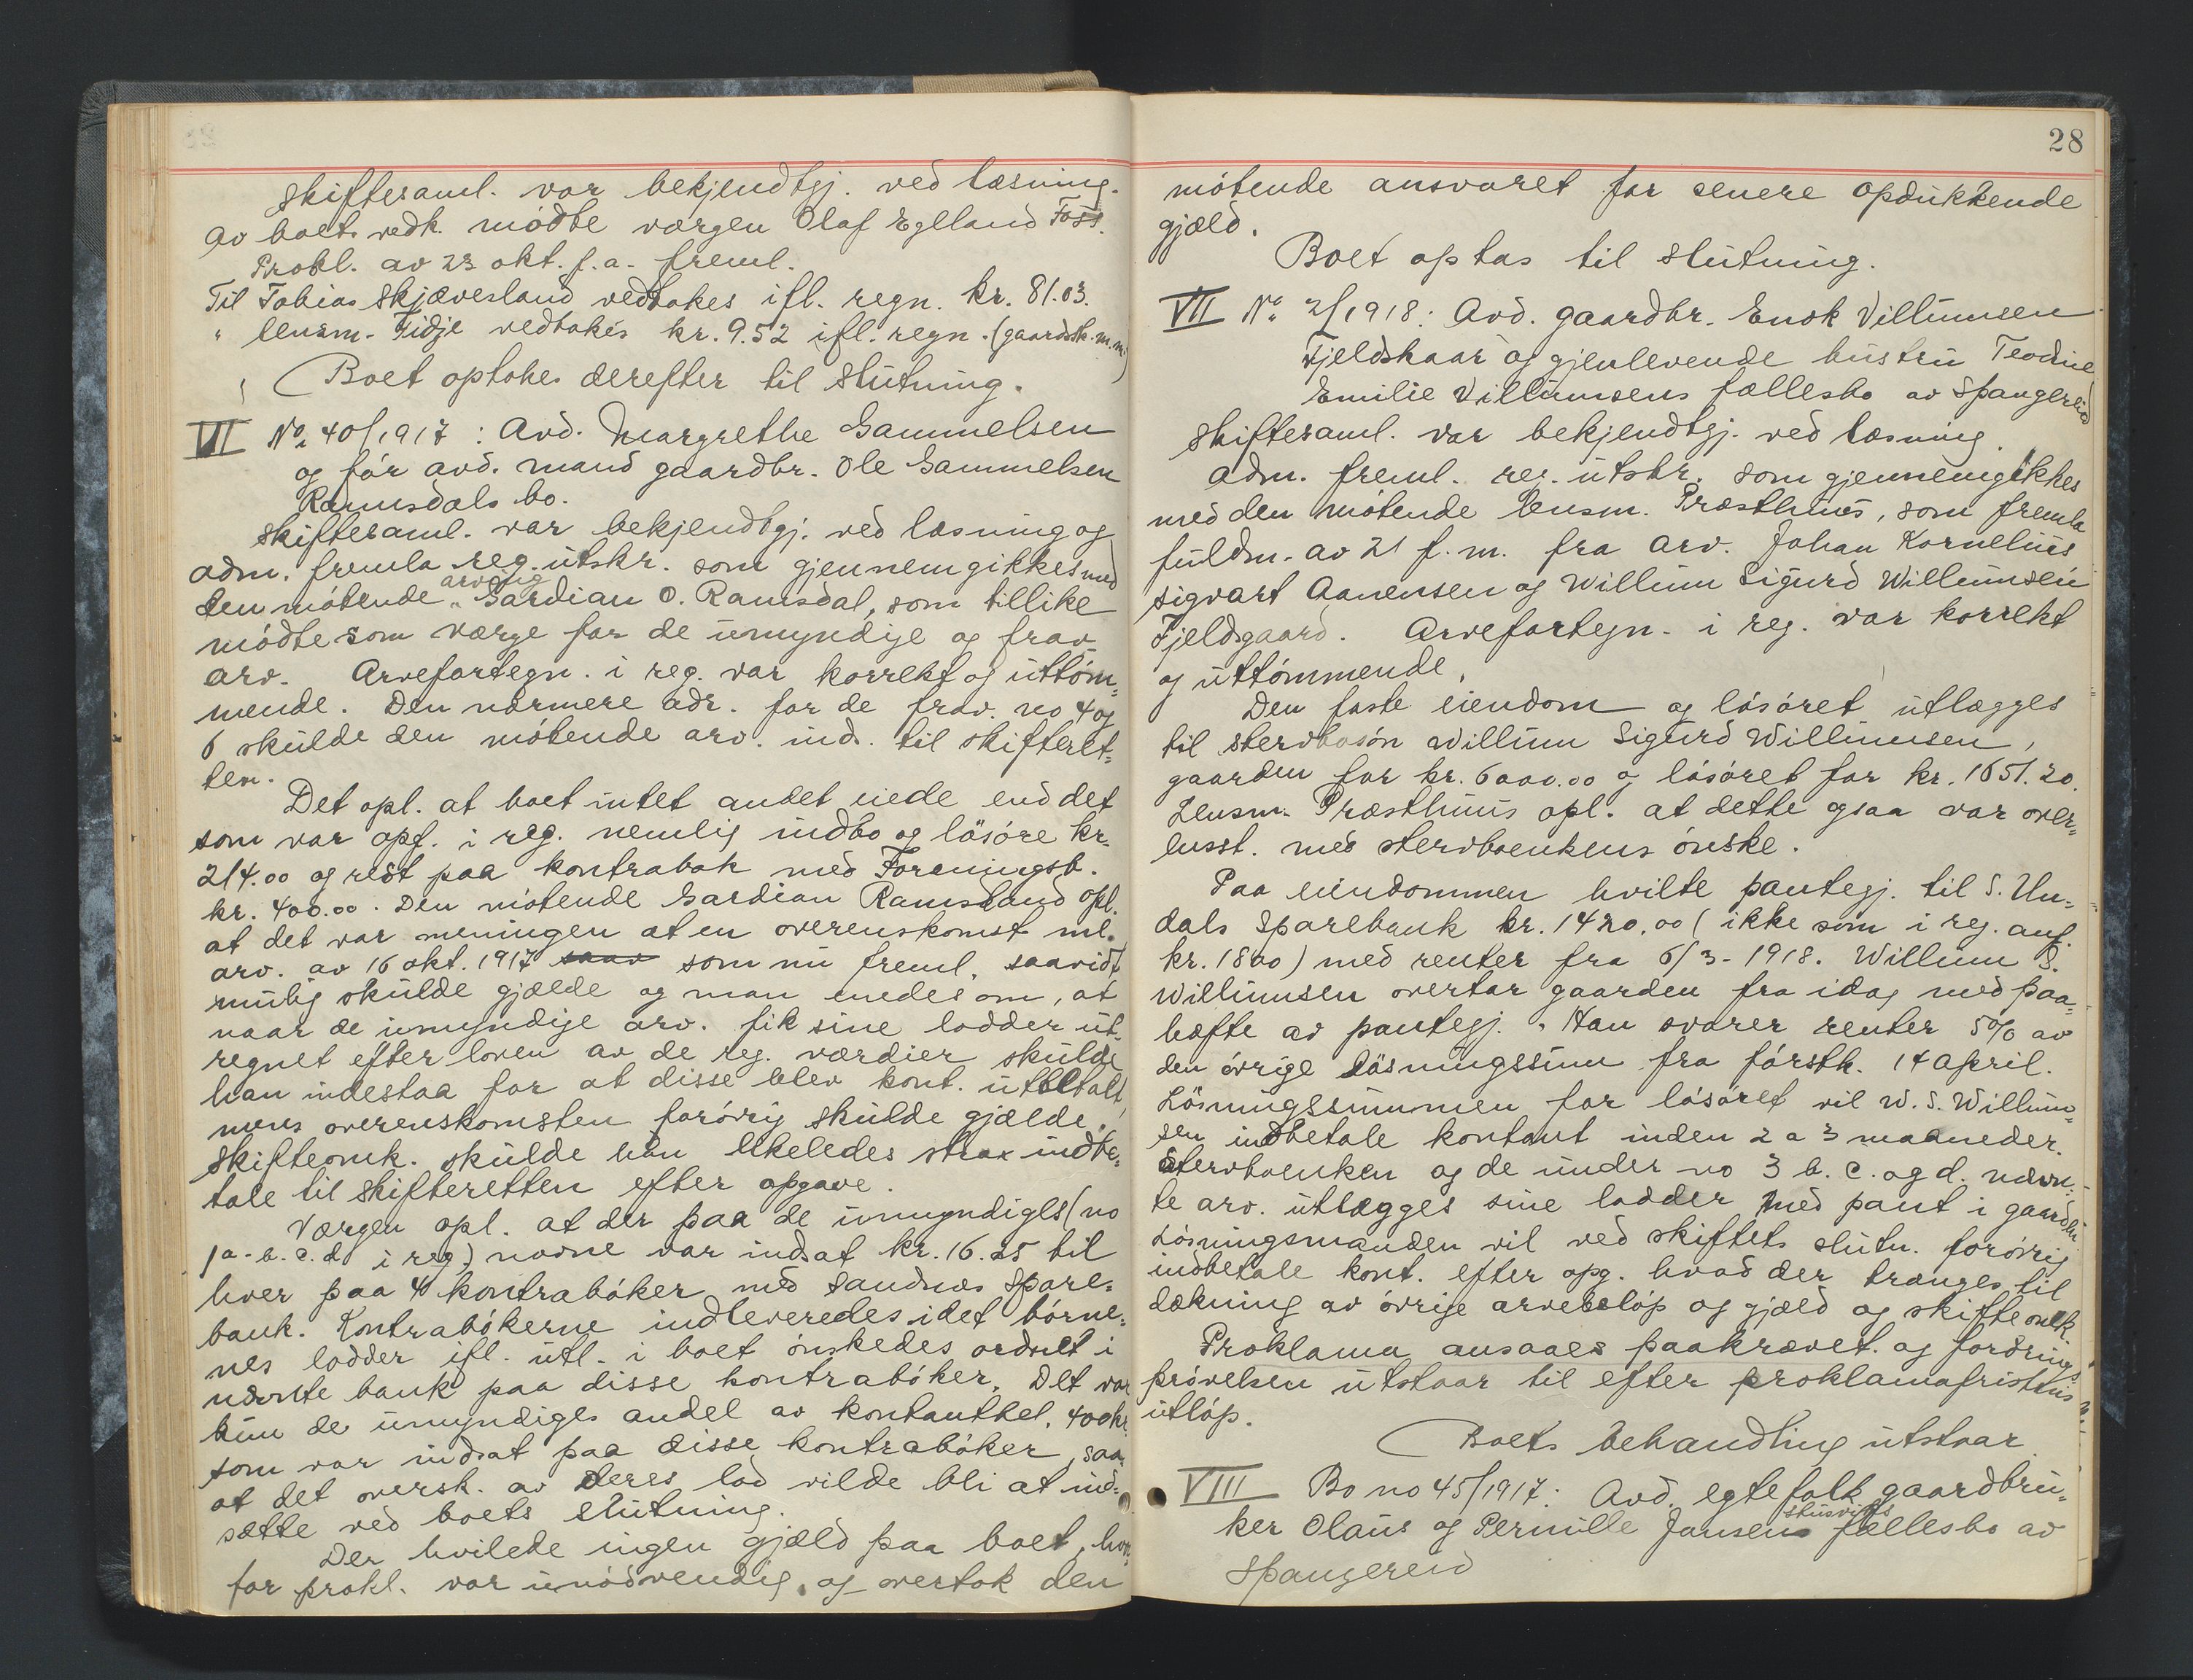 skiftesaml. var bekjendtgj. ved læsning.
Av boets vedk. mödte værgen Olaf Egeland Foss.
Prokl. av 23 okt. f.a. freml.
Til Tobias Skjævesland vedtokes ifl. regn. kr. 81.03.
" lensm. Tidje vedtokes kr. 9.52 ifl. regn. (gaardsk. m.m.)
Boet optokes derefter til slutning.
VI No. 40/1917: Avd. Margrethe Gammelsen
og för avd. mand gaardbr. Ole Gammelsen
Ramsdals bo.
Skiftesaml. var bekjendtgj. ved læsning og
adm. fremla reg. utskr. som gjennemgikkes med
den mötende arving Gardian O. Ramsdal, som tillike
mödte som værge for de umyndige og frav.
arv. Arvefortegn. i reg. var korrekt og uttöm=
mende. Den nærmere adr. for de frav. no 4 og
6 skulde den mötende arv. inds. til skifteret=
ten.
Det opl. at boet intet andet eiede end det
som var opf. i reg. nemlig indbo og lösöre kr.
214.00 og rest paa kontrabok med Foreningsb.
kr. 400.00. Den mötende Gardian Ramsland opl.
at det var meningen at en overenskomst ml.
arv. av 16 okt. 1917 saav som nu freml. saavidt
mulig skulde gjælde og man enedes om, at
naar de umyndige arv. fik sine lodder ut=
regnet efter loven av de reg. værdier skulde
han indestaa for at disse blev kont. utbetalt,
mens overenskomsten forövrig skulde gjælde.
Skifteomk. skulde han likeledes strax indbe=
tale til skifteretten efter opgave.
Værgen opl. at der paa de umyndiges (no
1a-b.c.d i reg) navne var indsat kr. 16.25 til
hver paa 4 kontraböker med Sandnes Spare=
bank. Kontrabökerne indleveredes idet börne=
nes lodder ifl. utl. i boet önskedes ordnet i
nævnte bank paa disse kontraböker. Det var
kun de umyndiges andel av kontanthet. 400 kr
som var indsat paa disse kontraböker, saa
at det oversk. av deres lod vilde bli at ind=
sætte ved boets slutning.
Der hvilede ingen gjæld paa boet, hvor=
for prokl. var unödvendig, og overtok den
28
mötende ansvaret for senere opdukkende
gjæld.
Boet optas til slutning.
VII No 2/1918: Avd. gaardbr. Enok Villumsen
Fjeldskaar og gjenlevende hustru Teodine
Emilie Villumsens fællesbo av Spangereid
Skiftesaml. var bekjendtgj. ved læsning.
Adm. freml. reg. utskr. som gjennemgikkes
med den mötende lensm. Præsthus, som fremla
fuldm. av 21 f.m. fra arv. Johan Kornelius
Sigvart Aanensen og Willum Sigurd Willumsen
Fjeldsgaard. Arvefortegn. i reg. var korrekt
og uttömmende.
Den faste eiendom og lösöret utlægges
til stervbosön Willum Sigurd Willumsen,
gaarden for kr. 6000.00 og lösöret for kr. 1651.20.
Lensm. Præsthus opl. at dette ogsaa var over=
ensst. med stervboenkens önske.
Paa eiendommen hvilte pantegj. til S. Un=
dals Sparebank kr. 1420.00 (ikke som i reg. anf.
kr. 1800) med renter fra 6/3-1918. Willum S.
Willumsen overtar gaarden fra idag med paa=
hæfte av pantegj. Han svarer renter 5% av
den övrige lösningssum fra förstk. 14 april.
Lösningssummen for lösöret vil W. S. Willum=
sen indbetale kontant inden 2 a 3 maaneder.
Stervboenken og de under no 3 b. c. og d. nævn=
te arv. utlægges sine lodder med pant i gaarden.
Lösningsmanden vil ved skiftets slutn. forövrig
indbetale kont. efter opg. hvad der trænges til
dækning av övrige arvebelöp og gjæld og skifteomk.
Proklama ansaaes paakrævet. og fordrings=
prövelsen utstaar til efter proklamafristens
utlöp.
Boets behandling utstaar.
VIII Bo no 45/1917: Avd. egtefolk gaardbru=
ker Olaus og Pernille Jansens fællesbo av
Spangereid